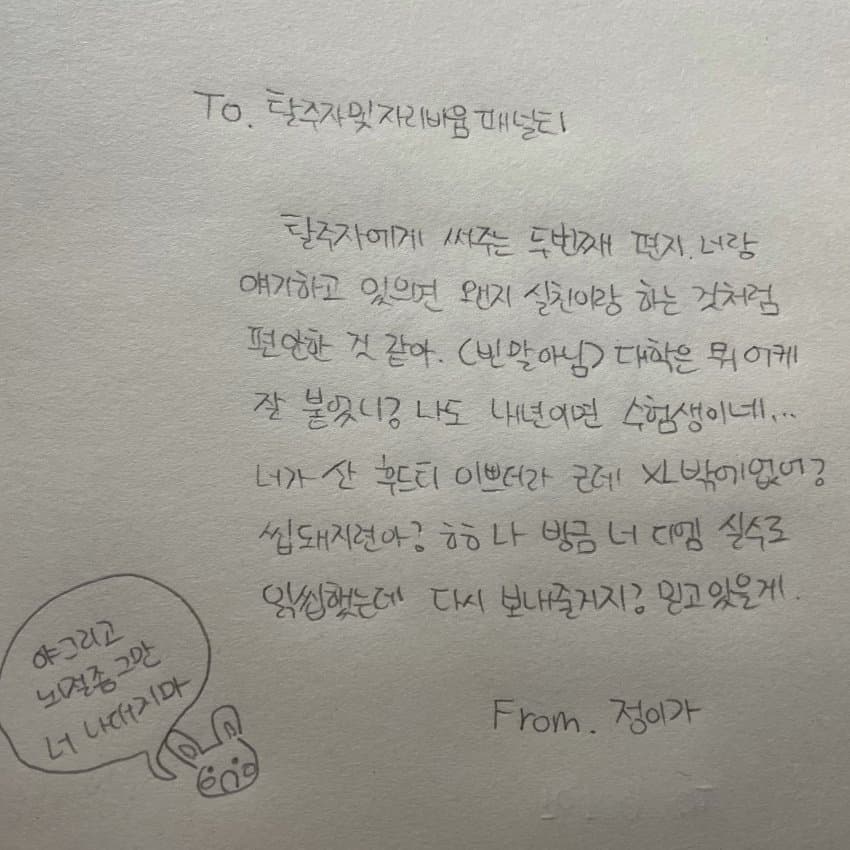 To. 탈주자및자리비움패널티
탈주자에게 써주는 두번째 편지. 너랑
얘기하고 있으면 왠지 실친이랑 하는 것처럼
편안한 것 같아. (빈말아님) 대학은 뭐 어케
잘 붙었니? 나도 내년이면 수험생이네...
너가 산 후드티 이쁘더라 근데 XL밖에없어?
씹돼지련아? ㅎㅎ 나 방금 너 디엠 실수로
읽씹했는데 다시 보내줄거지? 믿고있을게.
From. 정이가
야그리고
뇌절좀그만
너 나대지마